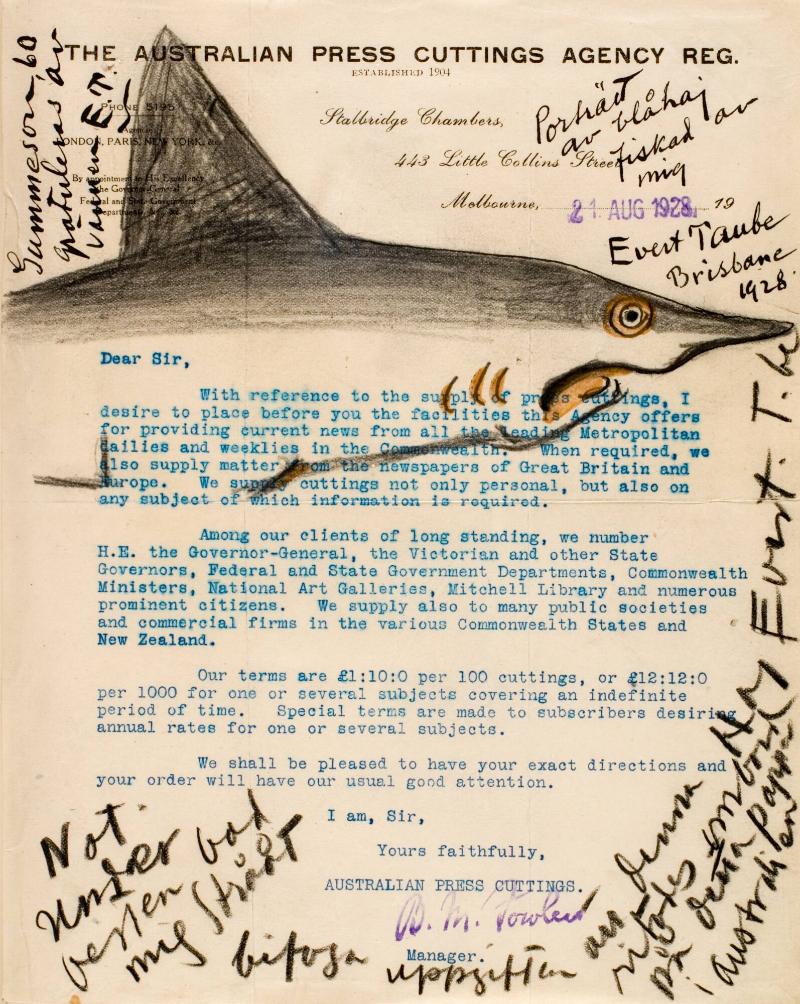 THE AUSTRALIAN PRESS CUTTINGS AGENCY REG.
ESTABLISHED 1904
PHONE 5195
Agencies
LONDON, PARIS, NEW YORK, &c.
By appointment to His Excellency
the Governor-General
Federal and State Government
Departments, &c. &c.
Stalbridge Chambers,
443 Little Collins Street
Melbourne, 21 AUG 1928 19
Gummeson 60
gratuleras av
vännen E.T.
Porträtt
av blåhaj
fiskad av
mig
Evert Taube
Brisbane
1928.
Dear Sir,
With reference to the supply of press cuttings, I
desire to place before you the facilities this Agency offers
for providing current news from all the leading Metropolitan
dailies and weeklies in the Commonwealth. When required, we
also supply matter from the newspapers of Great Britain and
Europe. We supply cuttings not only personal, but also on
any subject of which information is required.
Among our clients of long standing, we number
H.E. the Governor-General, the Victorian and other State
Governors, Federal and State Government Departments, Commonwealth
Ministers, National Art Galleries, Mitchell Library and numerous
prominent citizens. We supply also to many public societies
and commercial firms in the various Commonwealth States and
New Zealand.
Our terms are £1:10:0 per 100 cuttings, or £12:12:0
per 1000 for one or several subjects covering an indefinite
period of time. Special terms are made to subscribers desiring
annual rates for one or several subjects.
We shall be pleased to have your exact directions and
your order will have our usual good attention.
I am, Sir,
Yours faithfully,
AUSTRALIAN PRESS CUTTINGS.
B. M. Fowler
Manager.
Not.
Under
bad
mig
bifoga
uppgiften
att denna
Haj
ritades ombord
på detta papper
i Australien
Evert. T.